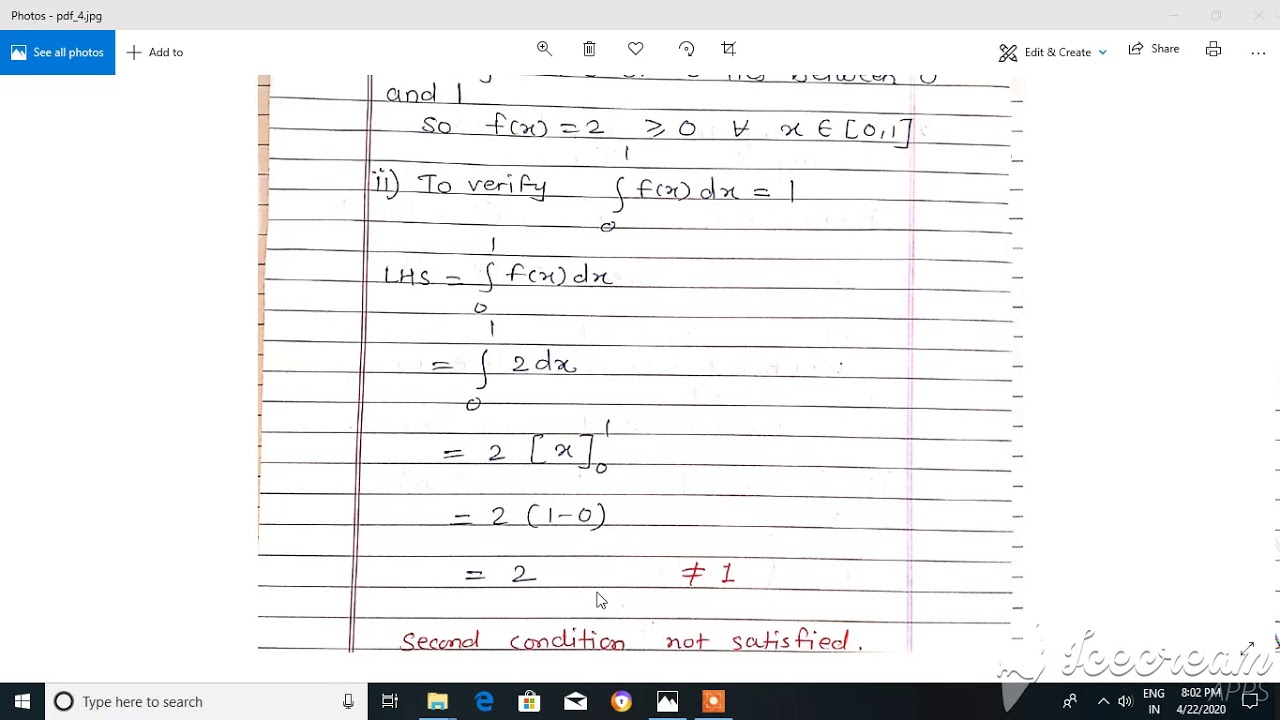 Photos - pdf_4.jpg
See all photos
Add to
Edit & Create
Share
between 0
and 1
so f(x) = 2 ⩾ 0 ∀ x ∈ [0,1]
ii) To verify ∫₀¹ f(x) dx = 1
LHS = ∫₀¹ f(x) dx
= ∫₀¹ 2 dx
= 2 [x]₀¹
= 2 (1-0)
= 2 ≠ 1
second condition not satisfied.
Icecream
APPS
Type here to search
ENG
IN
3:02 PM
4/22/2020